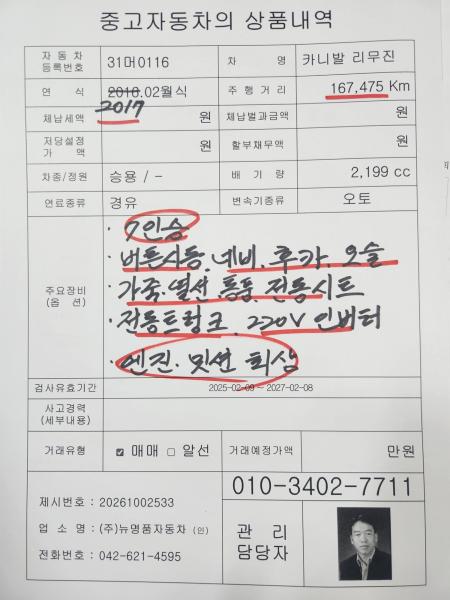 중고자동차의 상품내역
자동차 등록번호 31머0116 차 명 카니발 리무진
연 식 2018.02월식 2017 주행거리 167,475 Km
체납세액 원 체납벌과금액 원
저당설정 가 액 원 할부채무액 원
차종/정원 승용 / - 배 기 량 2,199 cc
연료종류 경유 변속기종류 오토
주요장비 (옵 션)
· 7인승
· 버튼시동. 네비. 후카. 오슬
· 가죽. 열선. 통풍. 전동시트
· 전동트렁크. 220V 인버터
· 엔진. 밋션 최상
검사유효기간 2025-02-09 ~ 2027-02-08
사고경력 (세부내용)
거래유형 ☑ 매매 □ 알선 거래예정가액 만원
010-3402-7711
제시번호 : 20261002533
업 소 명 : (주)뉴명품자동차 (인)
전화번호 : 042-621-4595
관 리 담당자